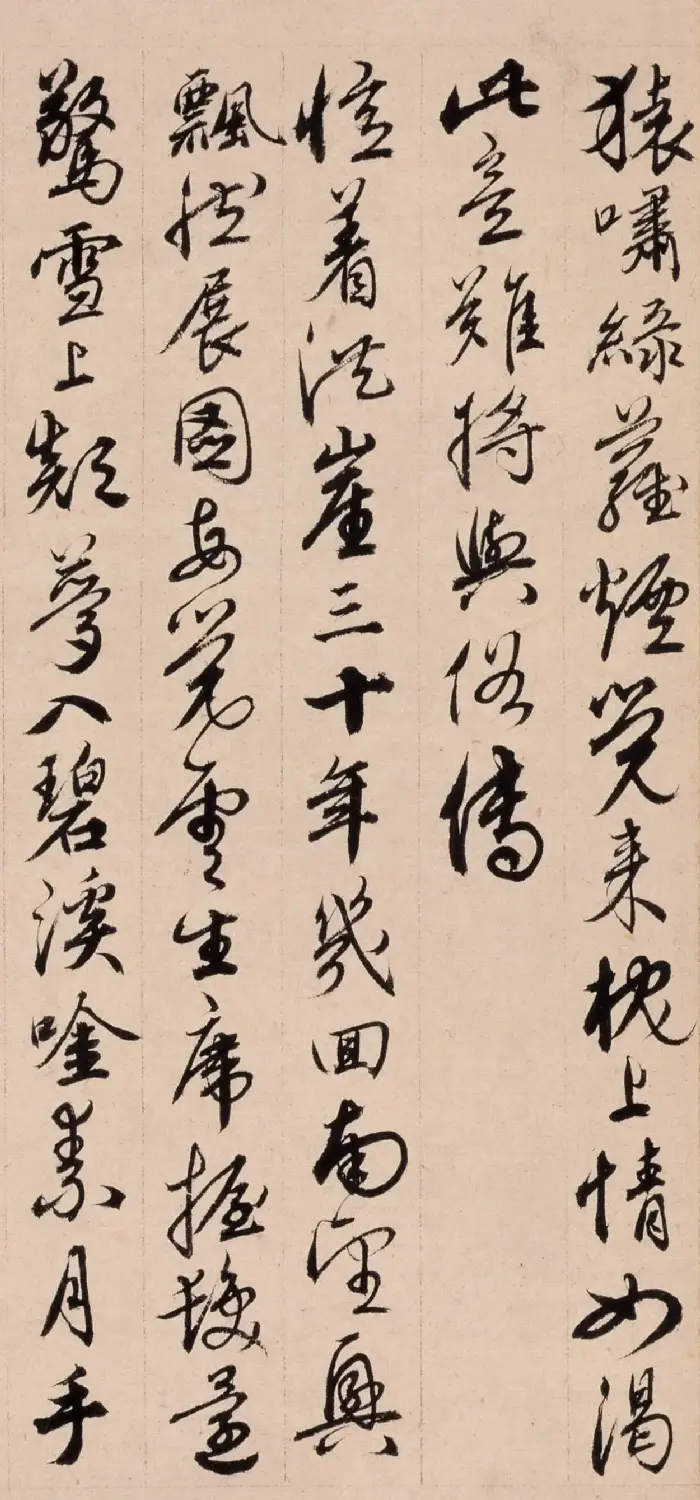 猿嘯綠蘿煙覺来枕上情如渴
此意難将與俗傳
憶着洪崖三十年幾回南望興
飄然展圖每覺雲生席握髮還
驚雪上顛夢入碧溪唫素月手